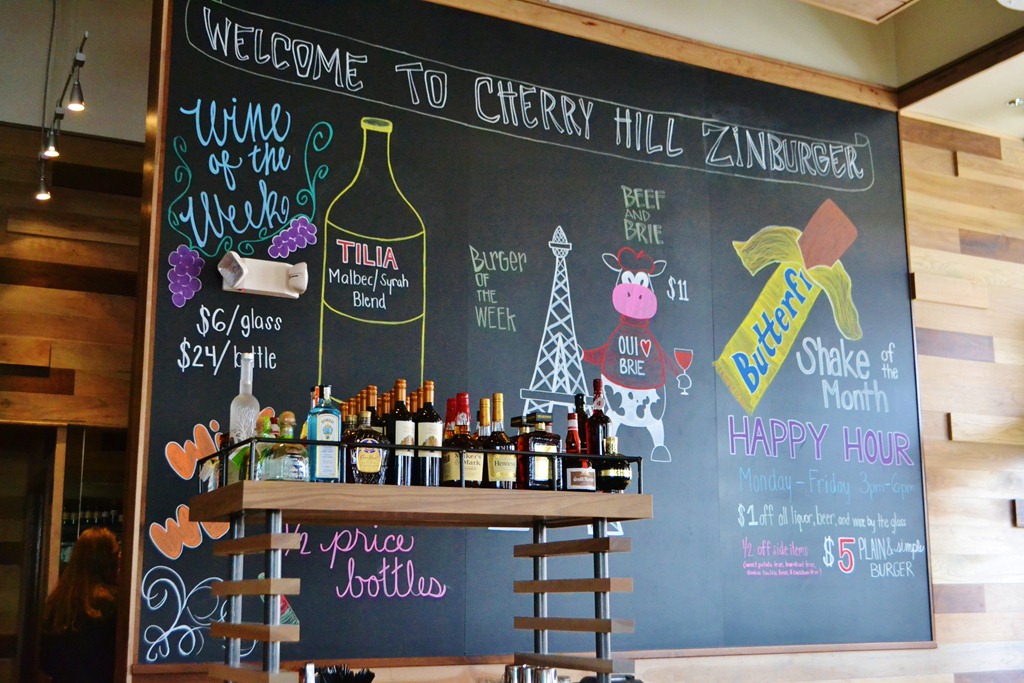 WELCOME TO CHERRY HILL ZINBURGER
Wine
of the
Week
TILIA
Malbec/Syrah
Blend
$6/glass
$24/bottle
BURGER
OF
THE
WEEK
BEEF
AND
BRIE
$11
OUI
BRIE
Butterfi
Shake of the
Month
HAPPY HOUR
Monday - Friday 3pm-6pm
$1 off all liquor, beer, and wine by the glass
1/2 off side items
$5 PLAIN & simple
BURGER
Wi
W
1/2 price
bottles